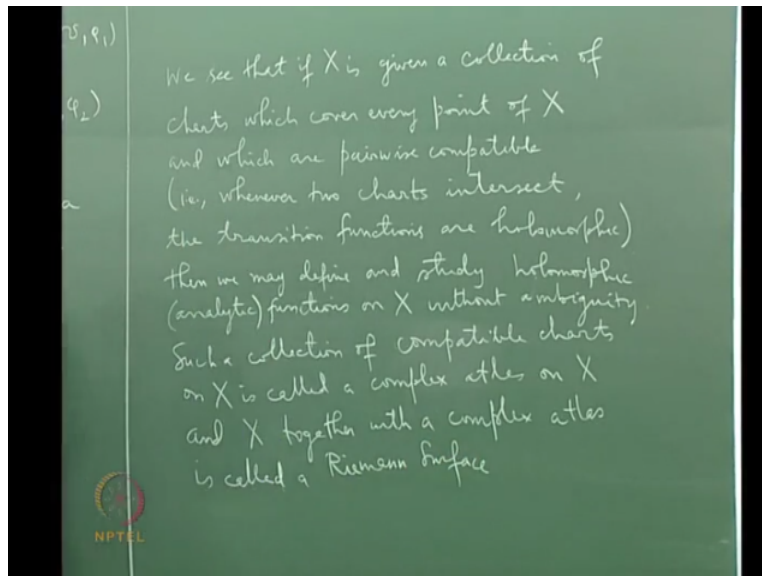 v, φ₁)
, φ₂)
a
We see that if X is given a collection of
charts which cover every point of X
and which are pairwise compatible
(i.e., whenever two charts intersect,
the transition functions are holomorphic)
then we may define and study holomorphic
(analytic) functions on X without ambiguity.
Such a collection of compatible charts
on X is called a complex atlas on X
and X together with a complex atlas
is called a Riemann Surface
NPTEL